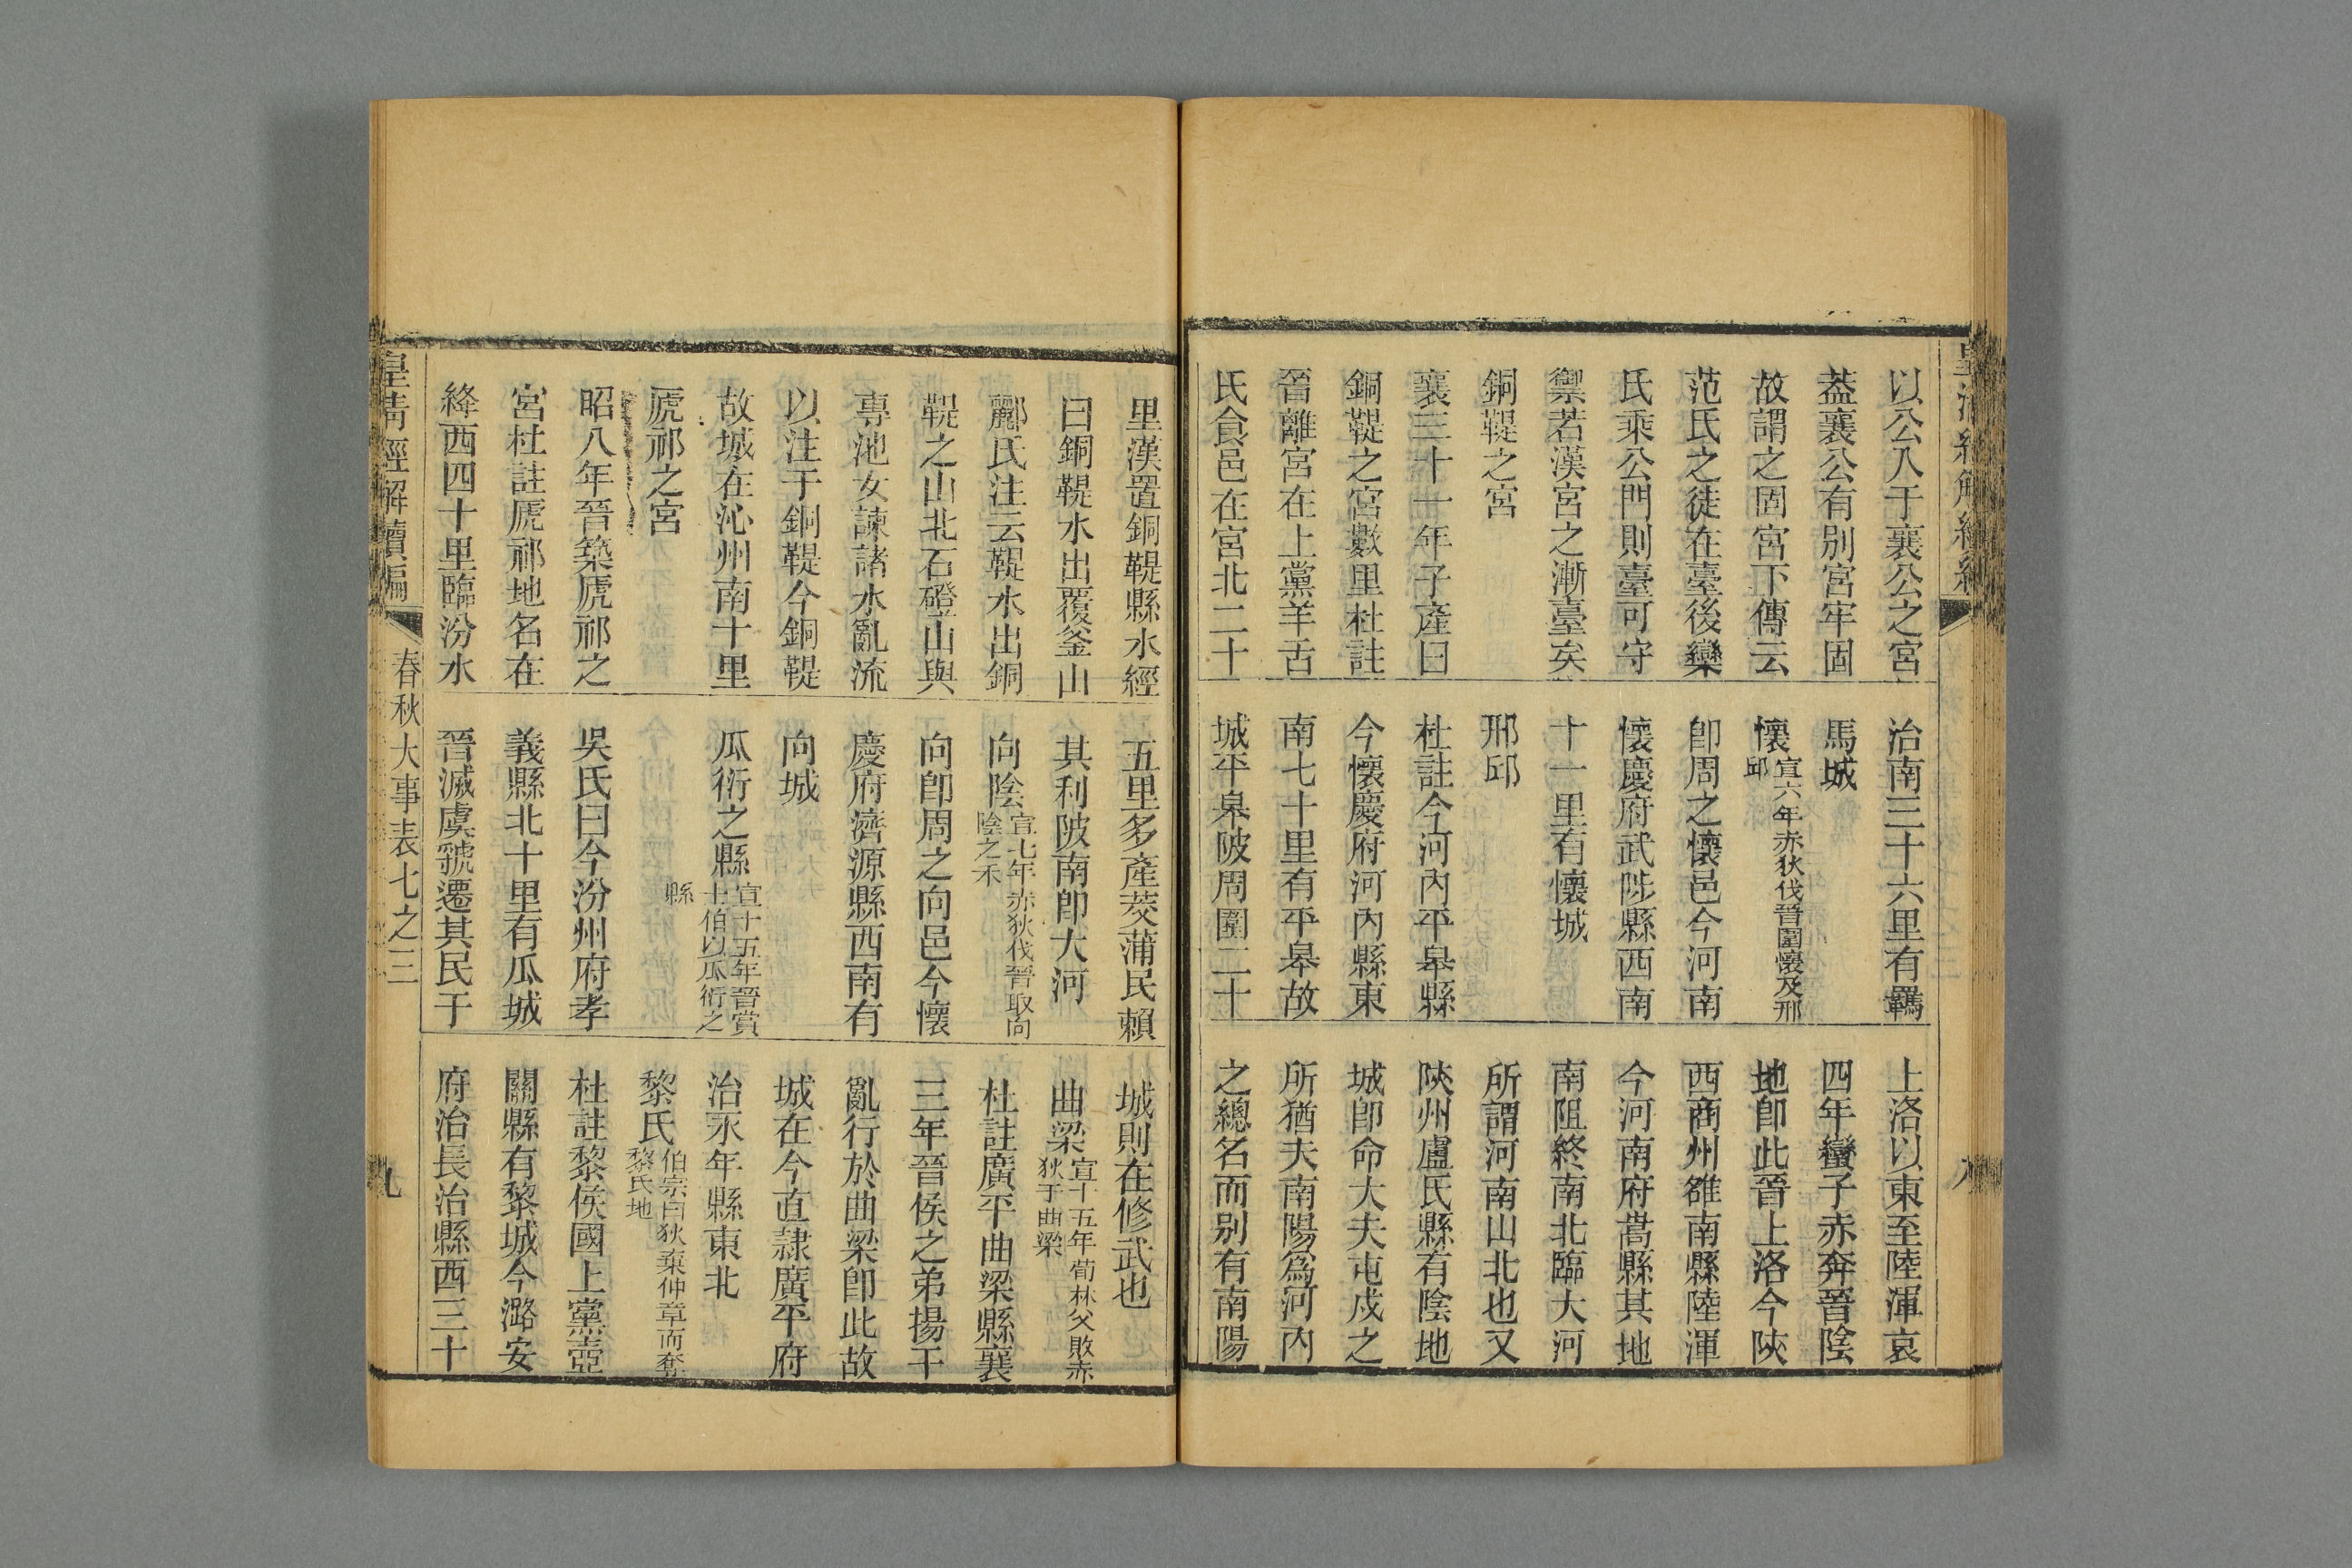 以公入于襄公之宮
葢襄公有別宮牢固
故謂之固宮下傳云
范氏之徒在臺後欒
氏乘公門則臺可守
禦若漢宮之漸臺矣
銅鞮之宮
襄三十一年子產曰
銅鞮之宮數里杜註
晉離宮在上黨羊舌
氏食邑在宮北二十
治南三十六里有羈
馬城
懷宣六年赤狄伐晉圍懷及邢邱
卽周之懷邑今河南
懷慶府武陟縣西南
十一里有懷城
邢邱
杜註今河內平皋縣
今懷慶府河內縣東
南七十里有平皋故
城平皋陂周圍二十
上洛以東至陸渾哀
四年蠻子赤奔晉陰
地卽此晉上洛今陝
西商州雒南縣陸渾
今河南府嵩縣其地
南阻終南北臨大河
所謂河南山北也又
陝州盧氏縣有陰地
城卽命大夫屯戍之
所猶夫南陽爲河內
之總名而別有南陽
里漢置銅鞮縣水經
曰銅鞮水出覆釜山
酈氏注云鞮水出銅
鞮之山北石磴山與
專池女諫諸水亂流
以注于銅鞮今銅鞮
故城在沁州南十里
虒祁之宮
昭八年晉築虒祁之
宮杜註虒祁地名在
絳西四十里臨汾水
五里多產茭蒲民賴
其利陂南卽大河
向陰宣七年赤狄伐晉取向陰之禾
向卽周之向邑今懷
慶府濟源縣西南有
向城
瓜衍之縣宣十五年晉賞士伯以瓜衍之縣
吳氏曰今汾州府孝
義縣北十里有瓜城
晉滅虞虢遷其民于
城則在修武也
曲梁宣十五年荀林父敗赤狄于曲梁
杜註廣平曲梁縣襄
三年晉侯之弟揚干
亂行於曲梁卽此故
城在今直隷廣平府
治永年縣東北
黎氏伯宗曰狄棄仲章而奪黎氏地
杜註黎侯國上黨壺
關縣有黎城今潞安
府治長治縣西三十
皇清經解續編
春秋大事表七之三
九